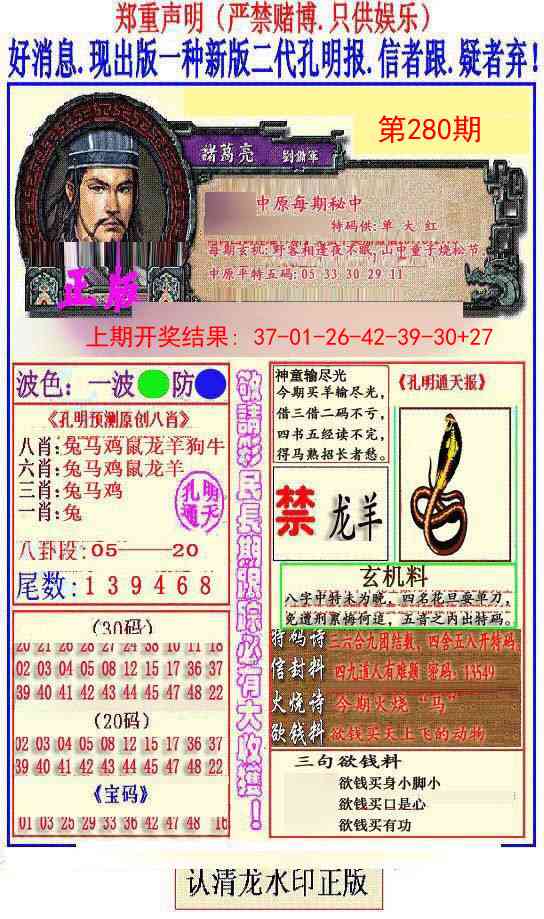 郑重声明（严禁赌博.只供娱乐）
好消息.现出版一种新版二代孔明报.信者跟.疑者弃!
第280期
諸葛亮 劉備軍
中原每期秘中
特码供:单 大 红
每期玄机:野客相逢夜不眠,山中童子烧松节
中原平特五码:05 33 30 29 11
正版
上期开奖结果: 37-01-26-42-39-30+27
波色：一波 防
《孔明预测原创八肖》
八肖:兔马鸡鼠龙羊狗牛
六肖:兔马鸡鼠龙羊
三肖:兔马鸡
一肖:兔
孔明
通天
八卦段:05——20
尾数:139468
敬請彩民長期跟踪必有大收獲!
神童输尽光
今期买羊输尽光，
借三借二码不亏，
四书五经读不完，
得马熟招长者愁。
《孔明通天报》
禁 龙羊
玄机料
八字中特未为晚，四名花旦耍单刀，
免遭刑累悔何迨，五音之内出特码。
特码诗 二六合九团结数，四含五八开特码
信封料 四九道人有难题 密码：13549
火烧诗 今期火烧“马”
欲钱料 欲钱买天上飞的动物
(30码)
20 21 26 28 27 24 36 38 10 11 18
02 03 04 05 08 12 15 17 36 37
39 40 41 42 43 44 45 47 48 22
(20码)
02 03 04 05 08 12 15 17 36 37
39 40 41 42 43 44 45 47 48 22
《宝码》
01 03 25 29 33 36 42 47 48 16
三句欲钱料
欲钱买身小脚小
欲钱买口是心
欲钱买有功
认清龙水印正版